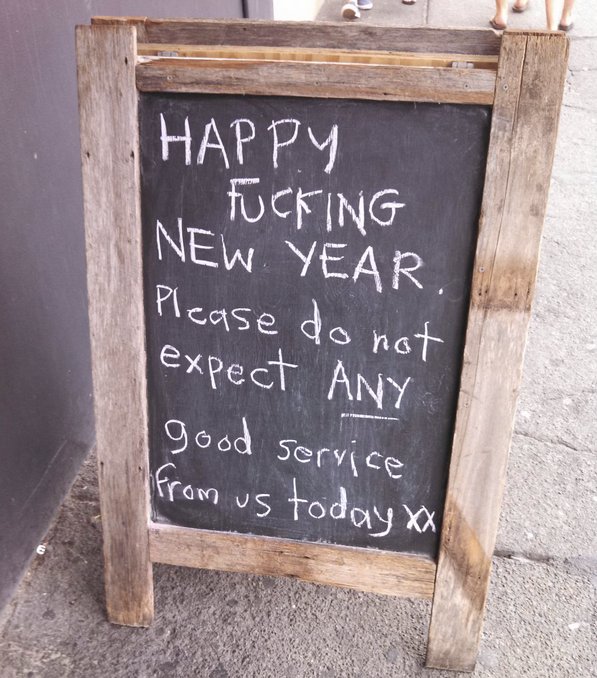 HAPPY
FUCKING
NEW YEAR.
Please do not
expect ANY
good service
from us today xx